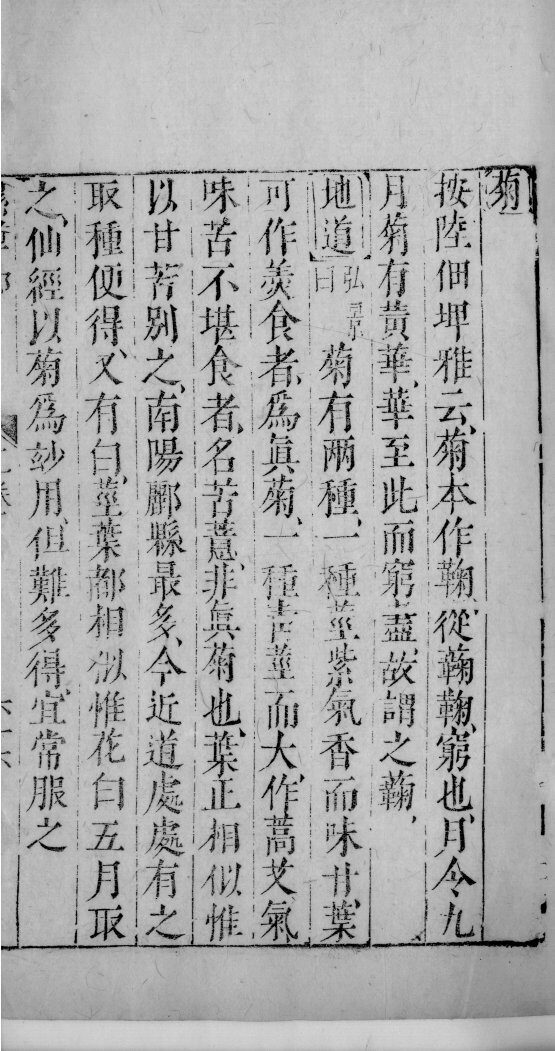 菊
按陸佃埤雅云、菊本作蘜、從鞠、鞠、窮也、月令九
月菊有黃華、華至此而窮盡、故謂之蘜、
地道 弘景曰 菊有兩種、一種莖紫氣香而味甘、葉
可作羹食者、爲眞菊、一種靑莖而大、作蒿艾氣
味苦不堪食者、名苦薏、非眞菊也、葉正相似惟
以甘苦別之、南陽酈縣最多、今近道處處有之
取種便得、又有白菊、莖葉都相似惟花白五月取
之、仙經以菊爲妙用、但難多得、宜常服之